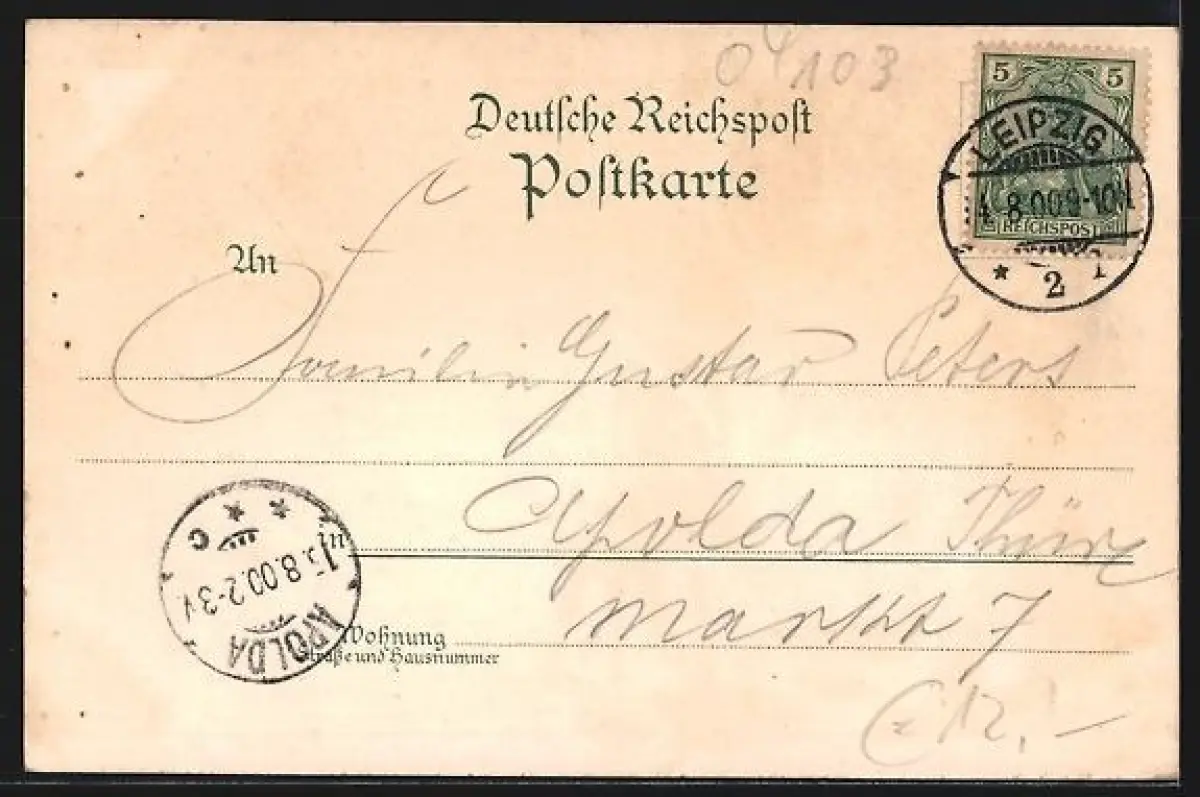 04103
5 5
Deutsche Reichspost
Postkarte
LEIPZIG
8.00.9-10
REICHSPOST
* 2
An
Familie Gustav Peters
Apolda Thür
in
Markt 7
Wohnung
Straße und Hausnummer
* * C
8.00.2-3
APOLDA
12,-